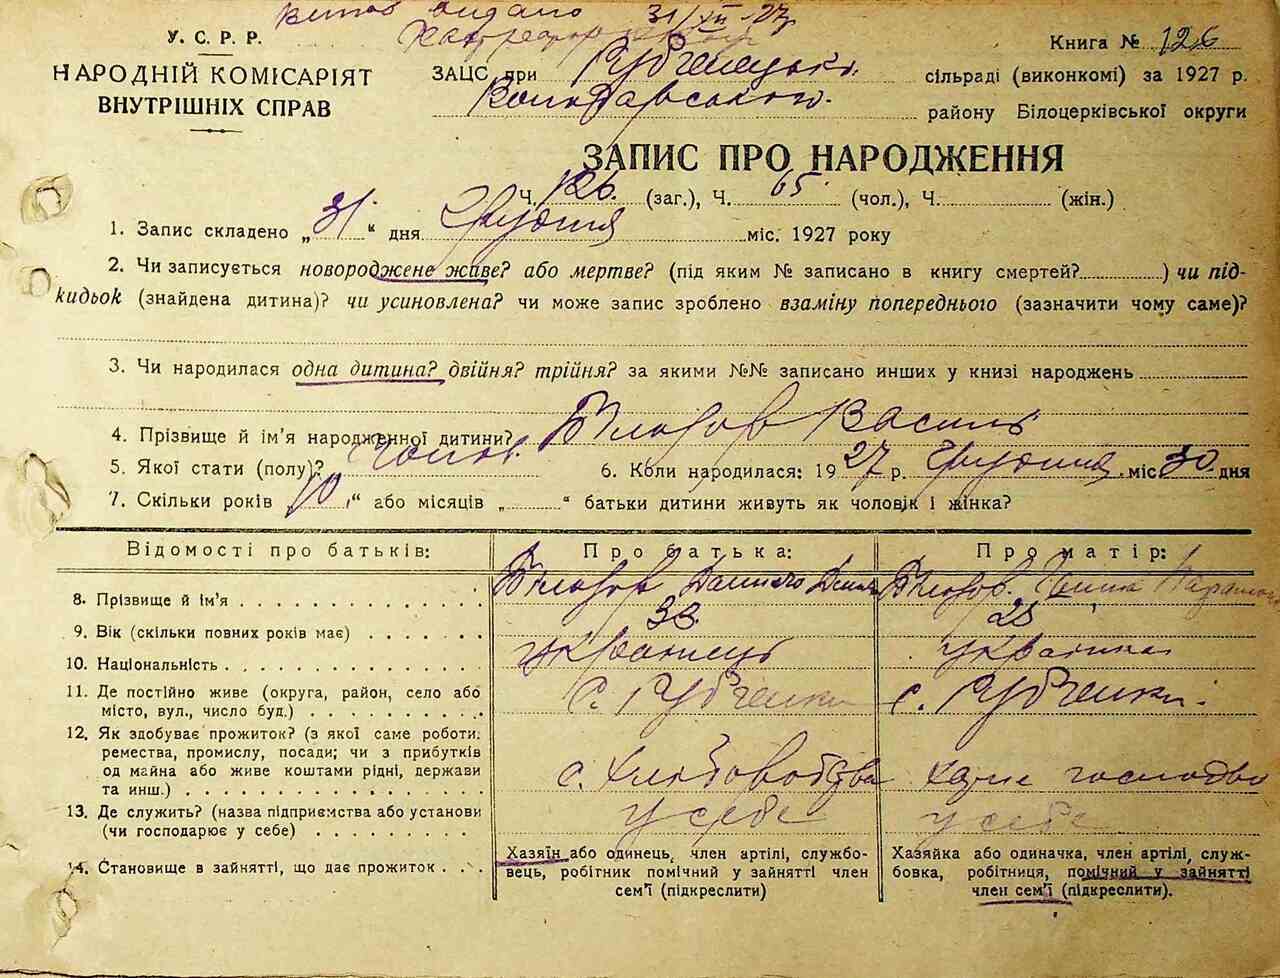 Витяг видано 31/XII-27 р.
У. С. Р. Р.
НАРОДНІЙ КОМІСАРІЯТ
ВНУТРІШНІХ СПРАВ
Книга № 126
ЗАЦС при Рубченецькі. сільраді (виконкомі) за 1927 р.
Володарського. району Білоцерківської округи
ЗАПИС ПРО НАРОДЖЕННЯ
Ч. 126. (заг.), Ч. 65. (чол.), Ч. (жін.)
1. Запис складено „31.“ дня Грудня міс. 1927 року
2. Чи записується новороджене живе? або мертве? (під яким № записано в книгу смертей? ) чи під-
кидьок (знайдена дитина)? чи усиновлена? чи може запис зроблено взаміну попереднього (зазначити чому саме)?
3. Чи народилася одна дитина? двійня? трійня? за якими №№ записано инших у книзі народжень
4. Прізвище й ім'я народженної дитини? Василь
5. Якої стати (полу)? Чолов. 6. Коли народилася: 1927 р. Грудня міс. 30. дня
7. Скільки років „10“ або місяців „ “ батьки дитини живуть як чоловік і жінка?
Відомості про батьків: Про батька: Про матір:
8. Прізвище й ім'я Данило
9. Вік (скільки повних років має) 33. 25
10. Національність українець українка
11. Де постійно живе (округа, район, село або
місто, вул., число буд.) с. Рубченки с. Рубченки.
12. Як здобуває прожиток? (з якої саме роботи:
ремества, промислу, посади; чи з прибутків
од майна або живе коштами рідні, держави
та инш.) с. Хліборобства хатнє господво
13. Де служить? (назва підприємства або установи
(чи господарює у себе) у себе у себе
14. Становище в зайнятті, що дає прожиток
Хазяїн або одинець, член артілі, службо-
вець, робітник помічний у зайнятті член
сем'ї (підкреслити)
Хазяйка або одиначка, член артілі, служ-
бовка, робітниця, помічний у зайнятті
член сем'ї (підкреслити).